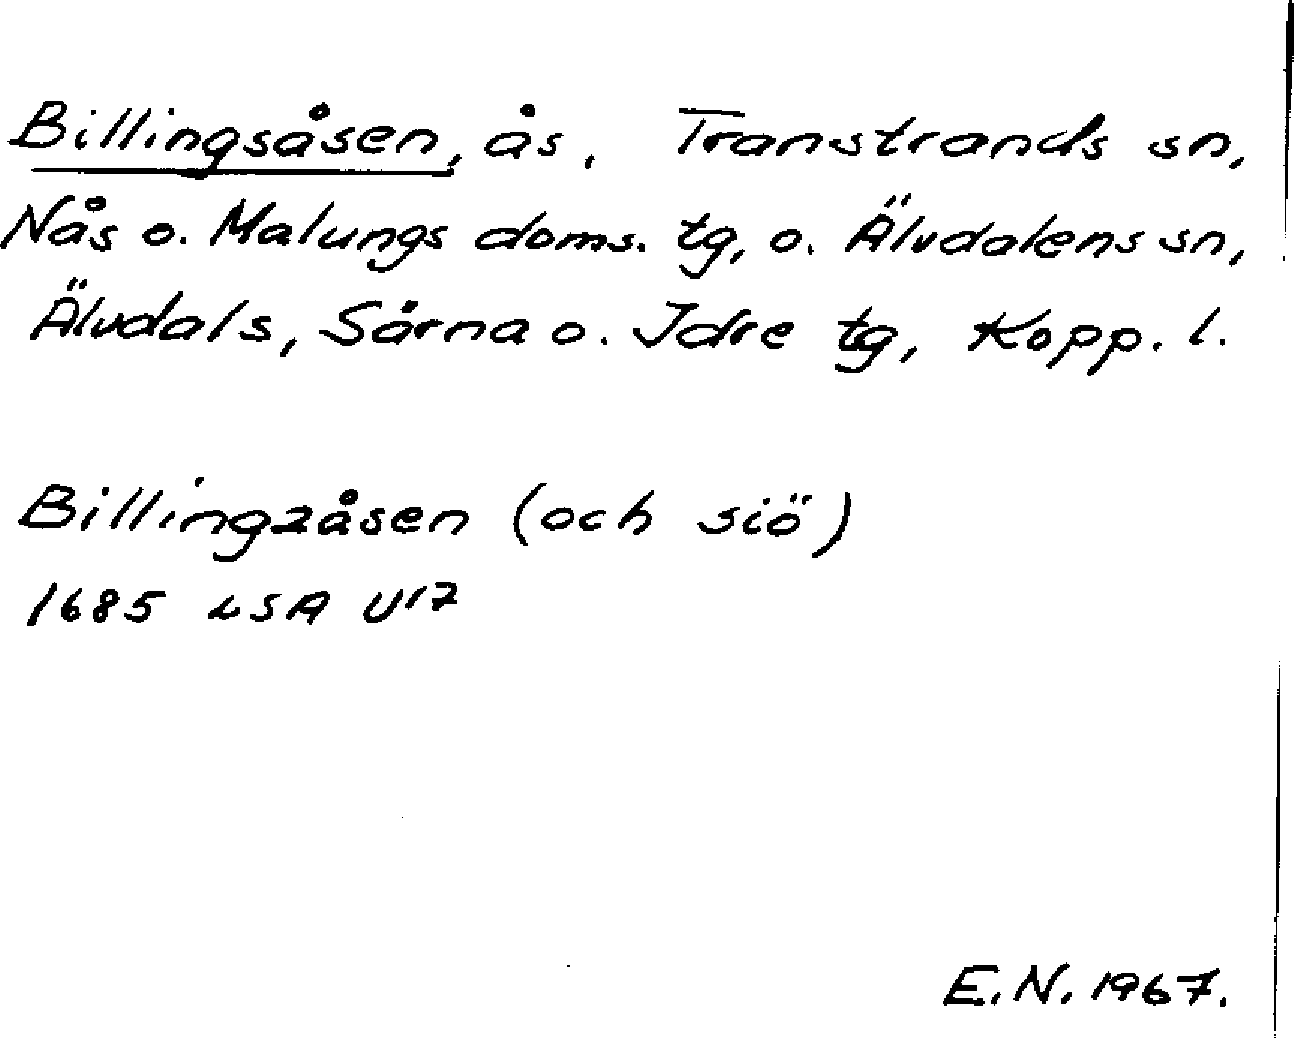 Billingsåsen, ås, Transtrands sn,
Nås o. Malungs doms. tg, o. Älvdalens sn,
Älvdals, Särna o. Idre tg, Kopp. l.
Billingzåsen (och siö)
1685 LSA U17
E.N. 1967.